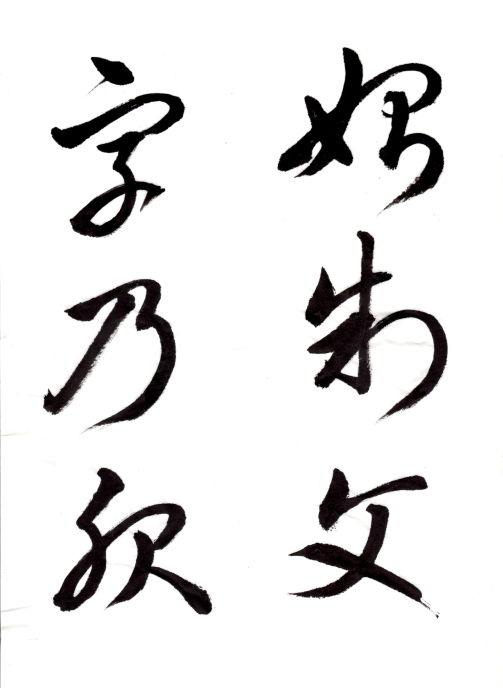 始制文
字乃服